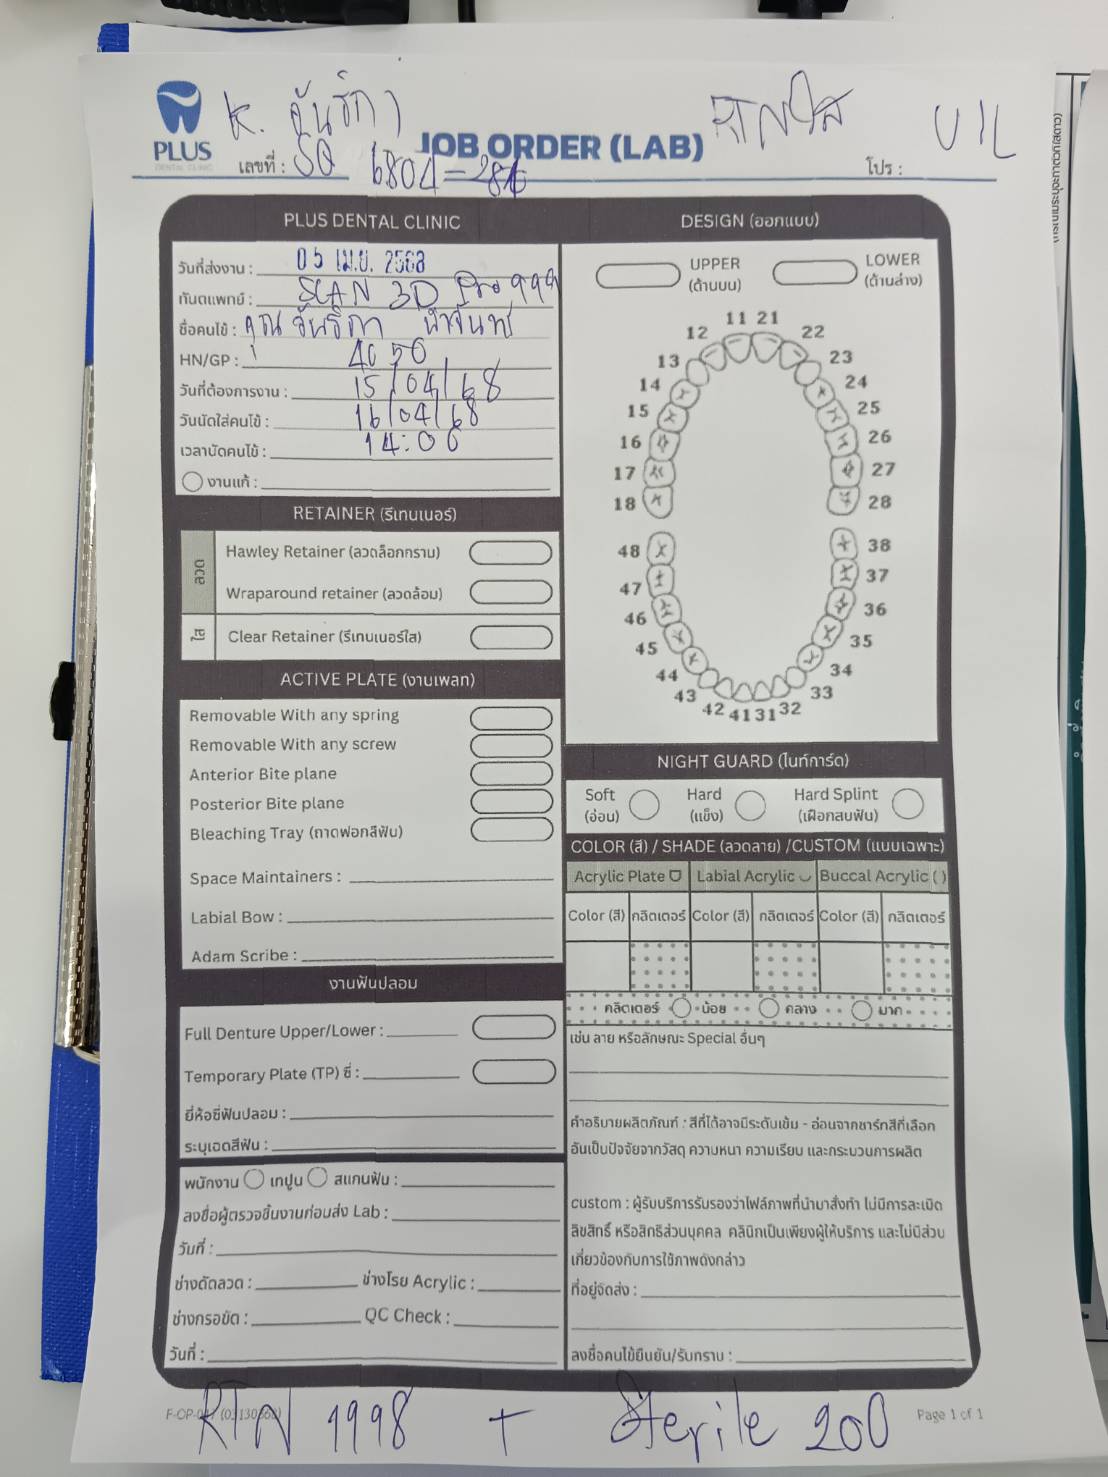 K. จันจิภา
RTNใส U1L
PLUS
DENTAL CLINIC
JOB ORDER (LAB)
เลขที่ : SO 6804-286
โปร :
PLUS DENTAL CLINIC
วันที่ส่งงาน : 05 เม.ย. 2568
ทันตแพทย์ : SCAN 3D โปร 999
ชื่อคนไข้ : คุณ จันจิภา
HN/GP : 4050
วันที่ต้องการงาน : 15/04/68
วันนัดใส่คนไข้ : 16/04/68
เวลานัดคนไข้ : 14:00
งานแก้ :
RETAINER (รีเทนเนอร์)
ลวด
Hawley Retainer (ลวดล็อกกราม)
Wraparound retainer (ลวดล้อม)
ใส
Clear Retainer (รีเทนเนอร์ใส)
ACTIVE PLATE (งานเพลท)
Removable With any spring
Removable With any screw
Anterior Bite plane
Posterior Bite plane
Bleaching Tray (ถาดฟอกสีฟัน)
Space Maintainers :
Labial Bow :
Adam Scribe :
งานฟันปลอม
Full Denture Upper/Lower :
Temporary Plate (TP) ซี่ :
ยี่ห้อซี่ฟันปลอม :
ระบุเฉดสีฟัน :
พนักงาน เทปูน สแกนฟัน :
ลงชื่อผู้ตรวจชิ้นงานก่อนส่ง Lab :
วันที่ :
ช่างดัดลวด : ช่างโรย Acrylic :
ช่างกรอขัด : QC Check :
วันที่ :
DESIGN (ออกแบบ)
UPPER
(ด้านบน)
LOWER
(ด้านล่าง)
11 21
12 22
13 23
14 24
15 25
16 26
17 27
18 28
48 38
47 37
46 36
45 35
44 34
43 33
42 41 31 32
NIGHT GUARD (ไนท์การ์ด)
Soft
(อ่อน)
Hard
(แข็ง)
Hard Splint
(เฝือกสบฟัน)
COLOR (สี) / SHADE (ลวดลาย) /CUSTOM (แบบเฉพาะ)
Acrylic Plate Labial Acrylic Buccal Acrylic ( )
Color (สี) กลิตเตอร์ Color (สี) กลิตเตอร์ Color (สี) กลิตเตอร์
กลิตเตอร์ น้อย กลาง มาก
เช่น ลาย หรือลักษณะ Special อื่นๆ
คำอธิบายผลิตภัณฑ์ : สีที่ได้อาจมีระดับเข้ม - อ่อนจากชาร์ทสีที่เลือก
อันเป็นปัจจัยจากวัสดุ ความหนา ความเรียบ และกระบวนการผลิต
custom : ผู้รับบริการรับรองว่าไฟล์ภาพที่นำมาสั่งทำ ไม่มีการละเมิด
ลิขสิทธิ์ หรือสิทธิส่วนบุคคล คลินิกเป็นเพียงผู้ให้บริการ และไม่มีส่วน
เกี่ยวข้องกับการใช้ภาพดังกล่าว
ที่อยู่จัดส่ง :
ลงชื่อคนไข้ยืนยัน/รับทราบ :
RTN 1998 + Sterile 200
Page 1 of 1